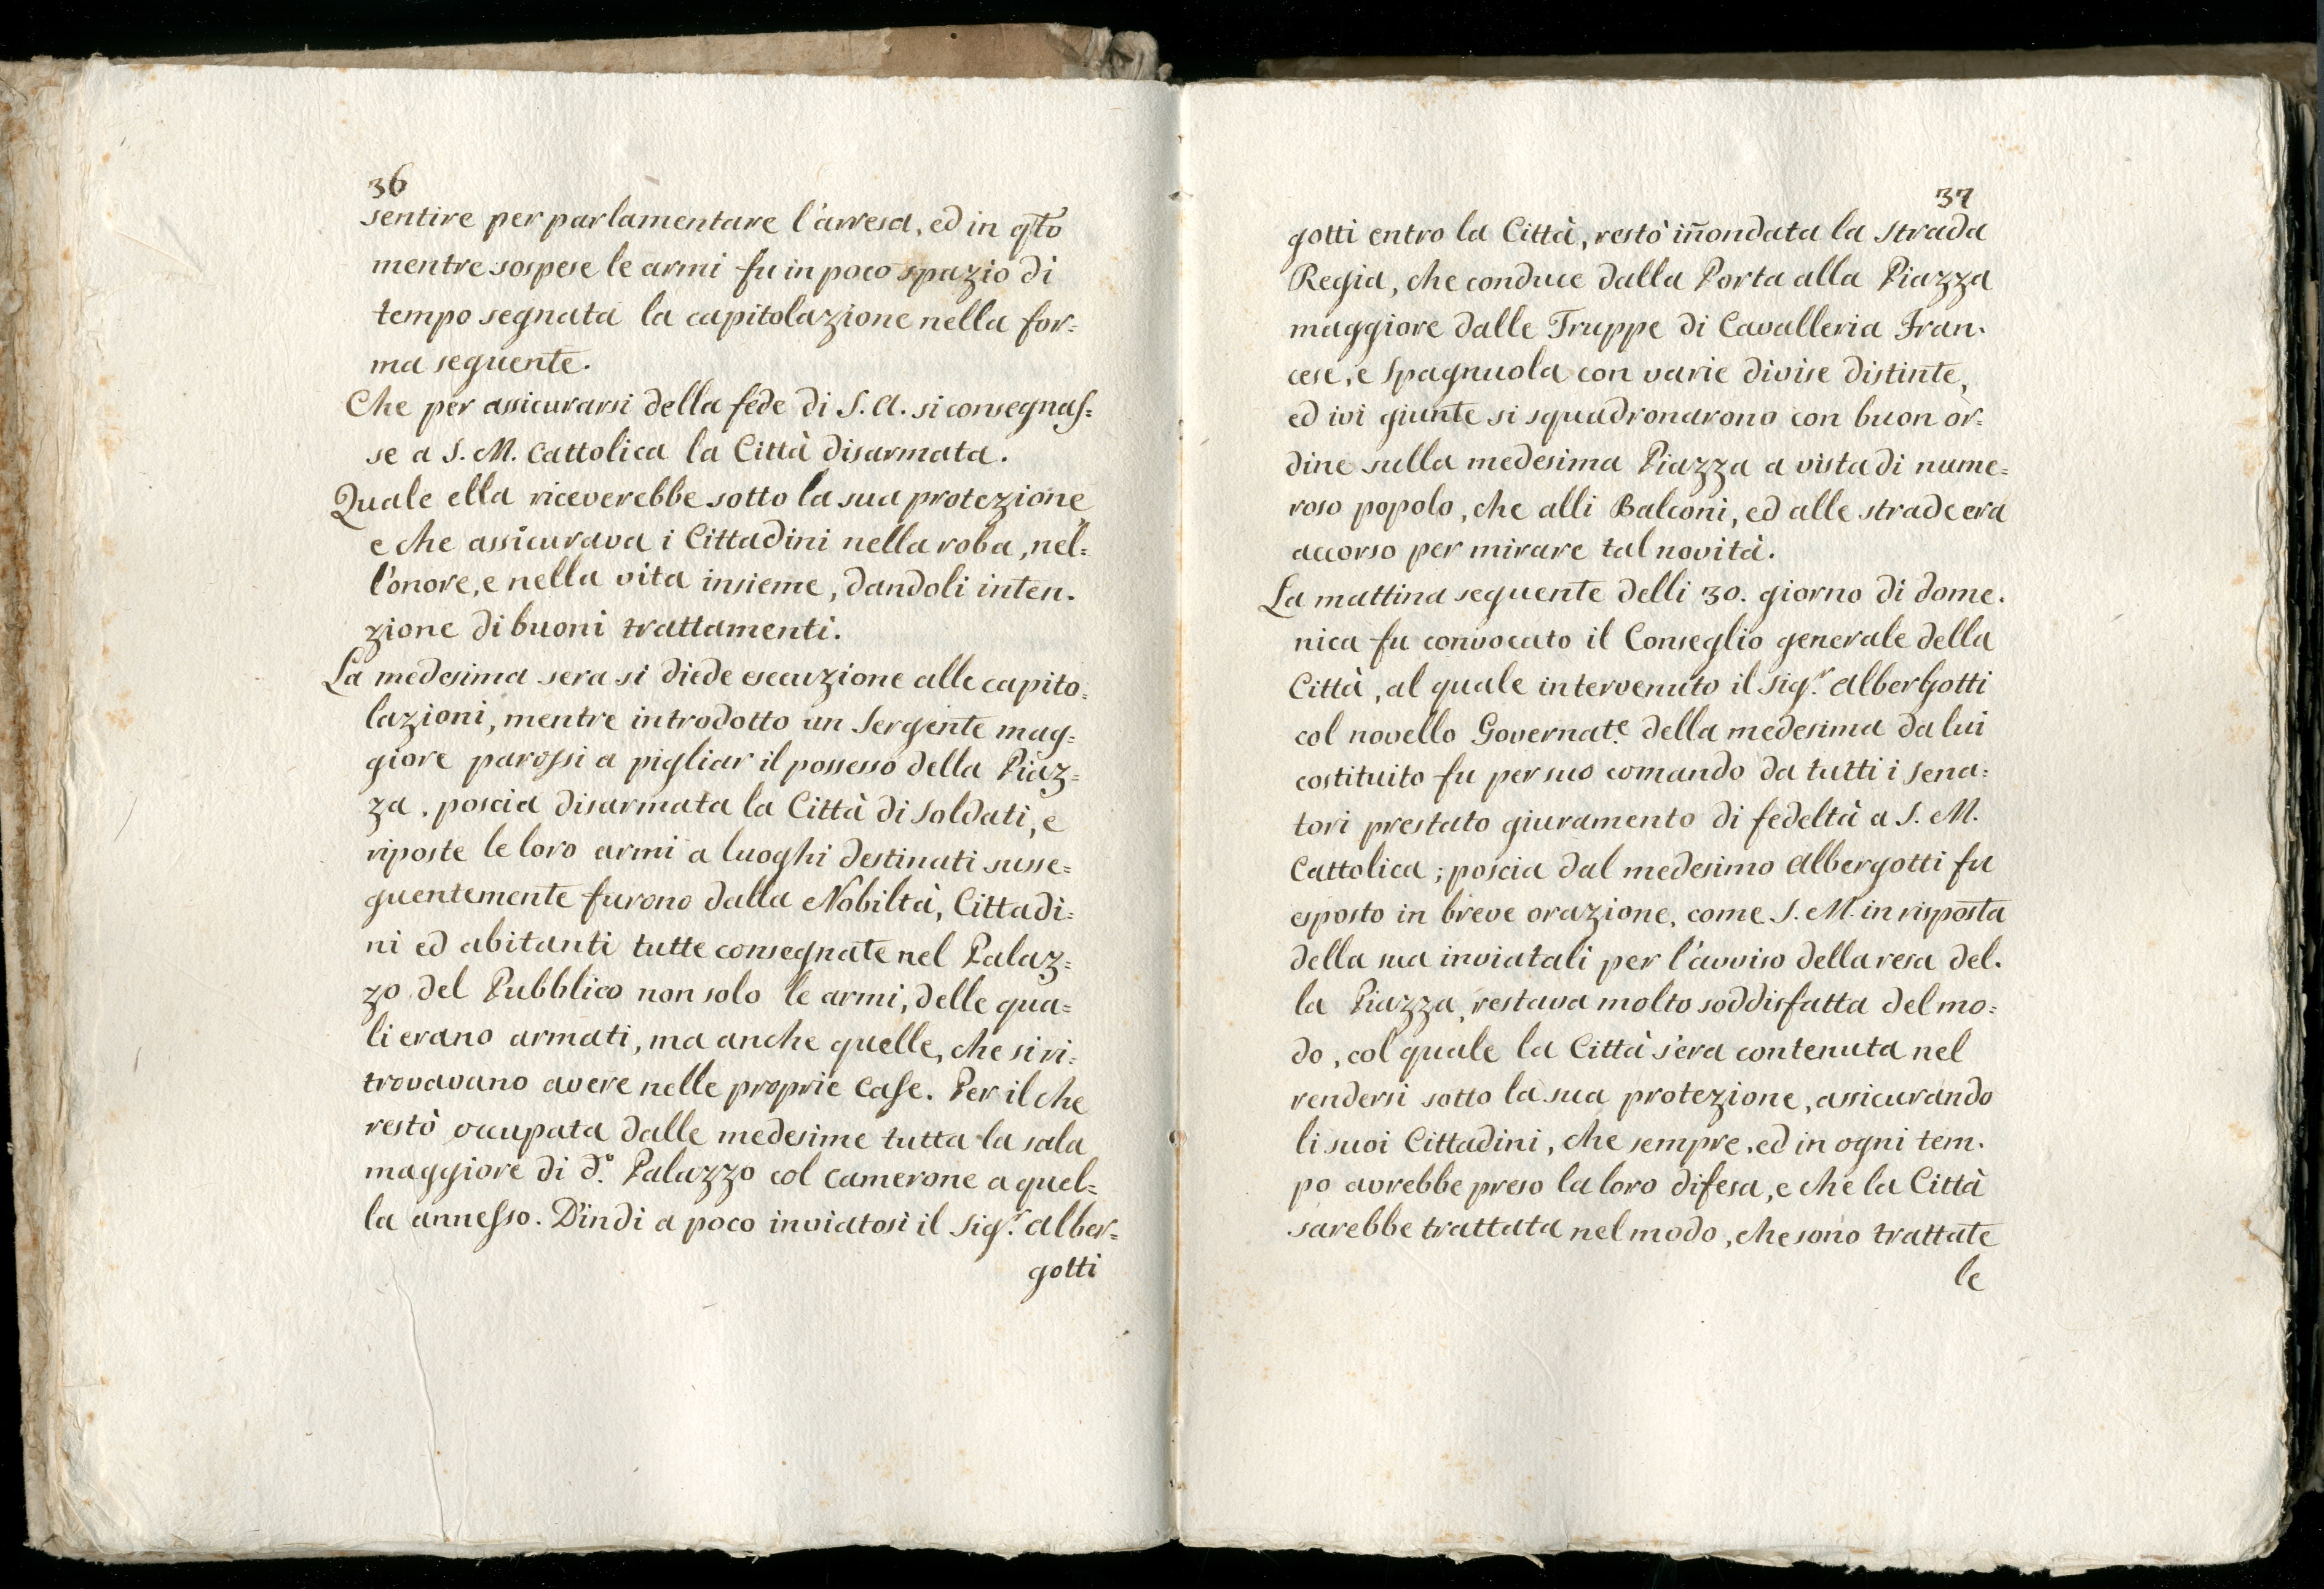 36
sentire per parlamentare l'arresa, ed in q̃to
mentre sospese le armi fu in poco spazio di
tempo segnata la capitolazione nella for=
ma seguente.
Che per assicurarsi della fede di S. A. si consegnas=
se a S. M. Cattolica la Città disarmata.
Quale ella riceverebbe sotto la sua protezione
e che assicurava i Cittadini nella roba, nel=
l'onore, e nella vita insieme, dandoli inten.
zione di buoni trattamenti.
La medesima sera si diede esecuzione alle capito=
lazioni, mentre introdotto un Sergente mag=
giore parossi a pigliar il possesso della Piaz=
za. poscia disarmata la Città di Soldati, e
riposte le loro armi a luoghi destinati susse=
guentemente furono dalla Nobiltà, Cittadi=
ni ed abitanti tutte consegnate nel Palaz=
zo del Pubblico non solo le armi, delle qua=
li erano armati, ma anche quelle, che si ri=
trovavano avere nelle proprie Case. Per il che
restò occupata dalle medesime tutta la sala
maggiore di d.º Palazzo col Camerone a quel=
la annesso. D'indi a poco inviatosi il Sig.r Alber=
gotti
37
gotti entro la Città, restò iñondata la Strada
Regia, che conduce dalla Porta alla Piazza
maggiore dalle Truppe di Cavalleria Fran.
cese, e Spagnuola con varie divise distinte,
ed ivi giunte si squadronarono con buon or=
dine sulla medesima Piazza a vista di nume=
roso popolo, che alli Balconi, ed alle strade era
accorso per mirare tal novità.
La mattina seguente delli 30. giorno di dome.
nica fu convocato il Conseglio generale della
Città, al quale intervenuto il Sig.r Albergotti
col novello Governat.e della medesima da lui
costituito fu per suo comando da tutti i Sena=
tori prestato giuramento di fedeltà a S. M.
Cattolica; poscia dal medesimo Albergotti fu
esposto in breve orazione, come S. M. in risposta
della sua inviatali per l'avviso della resa del.
la Piazza, restava molto soddisfatta del mo=
do, col quale la Città s'era contenuta nel
rendersi sotto la sua protezione, assicurando
li suoi Cittadini, che sempre, ed in ogni tem.
po avrebbe preso la loro difesa, e che la Città
sarebbe trattata nel modo, che sono trattate
le